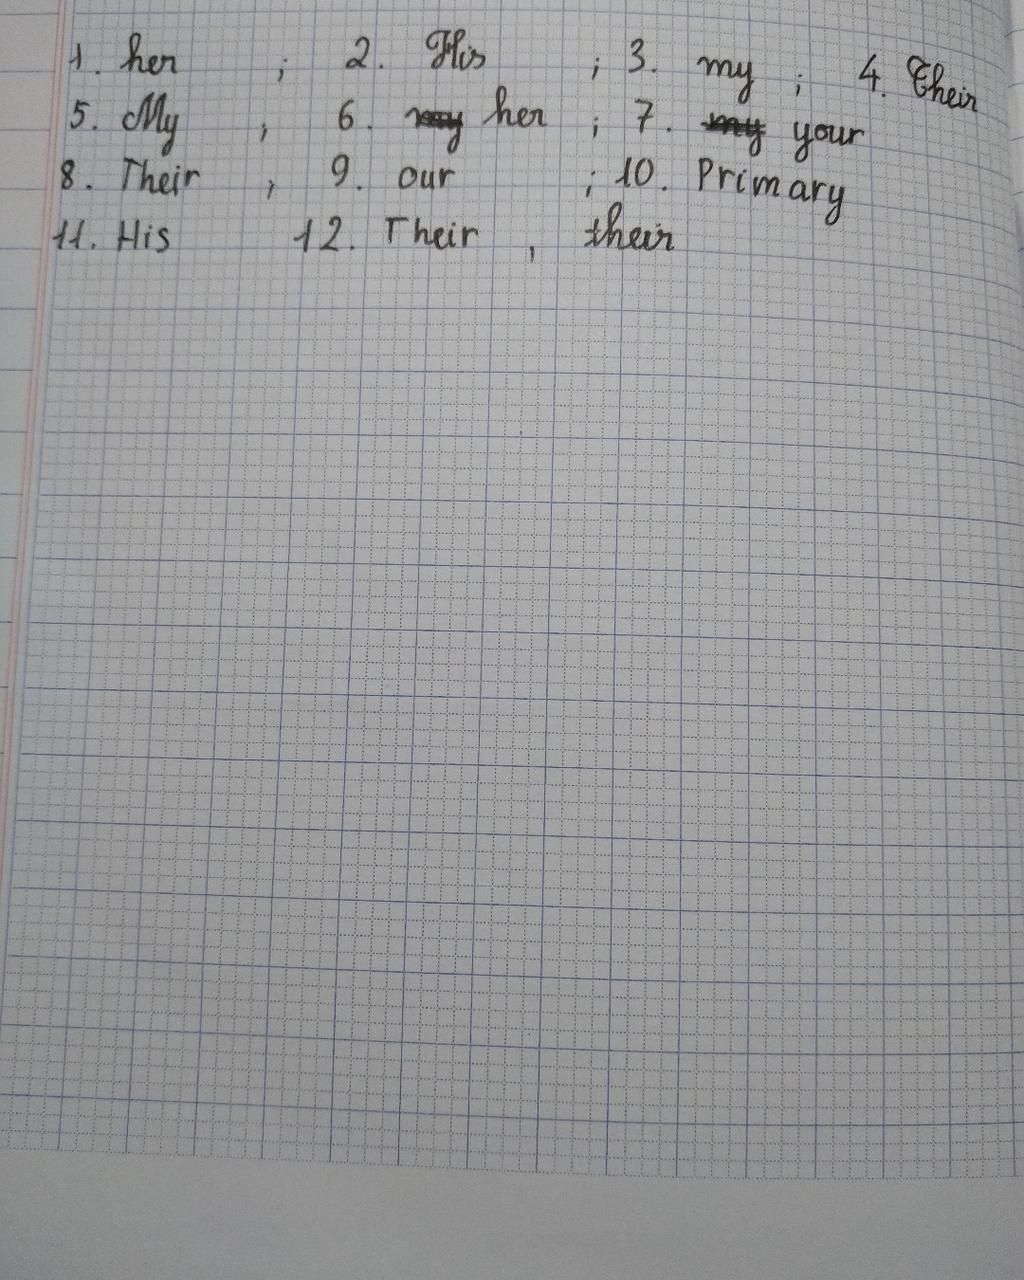 1. her ; 2. His ; 3. my ; 4. Their
5. My , 6. her ; 7. your
8. Their , 9. our ; 10. Primary
11. His 12. Their , their